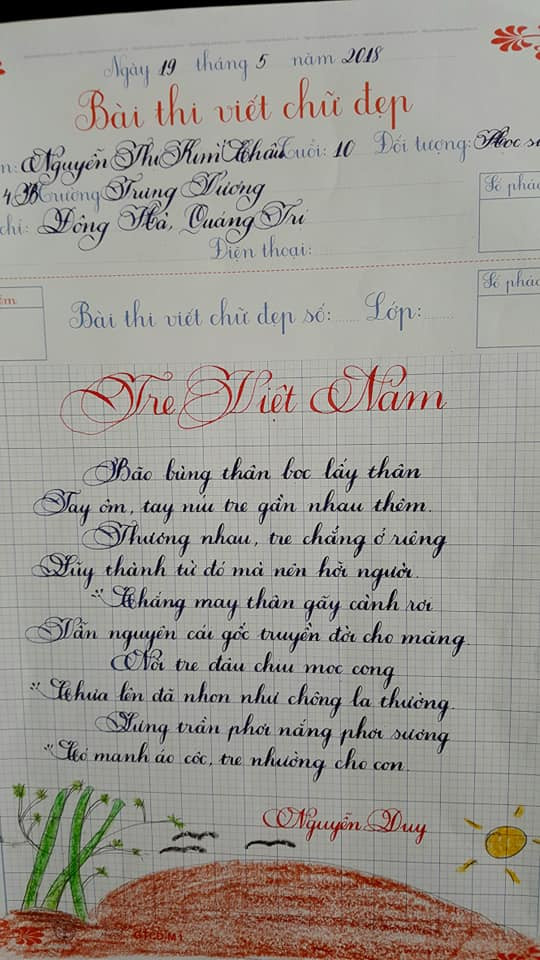 Ngày 19 tháng 5 năm 2018
Bài thi viết chữ đẹp
n: Nguyễn Thị Kim Châu Tuổi: 10 Đối tượng: Học s
4B Trường Trưng Vương
chỉ: Đông Hà, Quảng Trị
Điện thoại:
Số phác
Bài thi viết chữ đẹp số: Lớp:
Số phác
Tre Việt Nam
Bão bùng thân bọc lấy thân
Tay ôm, tay níu tre gần nhau thêm.
Thương nhau, tre chẳng ở riêng
Lũy thành từ đó mà nên hỡi người.
Chẳng may thân gãy cành rơi
Vẫn nguyên cái gốc truyền đời cho măng.
Nòi tre đâu chịu mọc cong
Chưa lên đã nhọn như chông lạ thường.
Lưng trần phơi nắng phơi sương
Có manh áo cộc, tre nhường cho con.
Nguyễn Duy